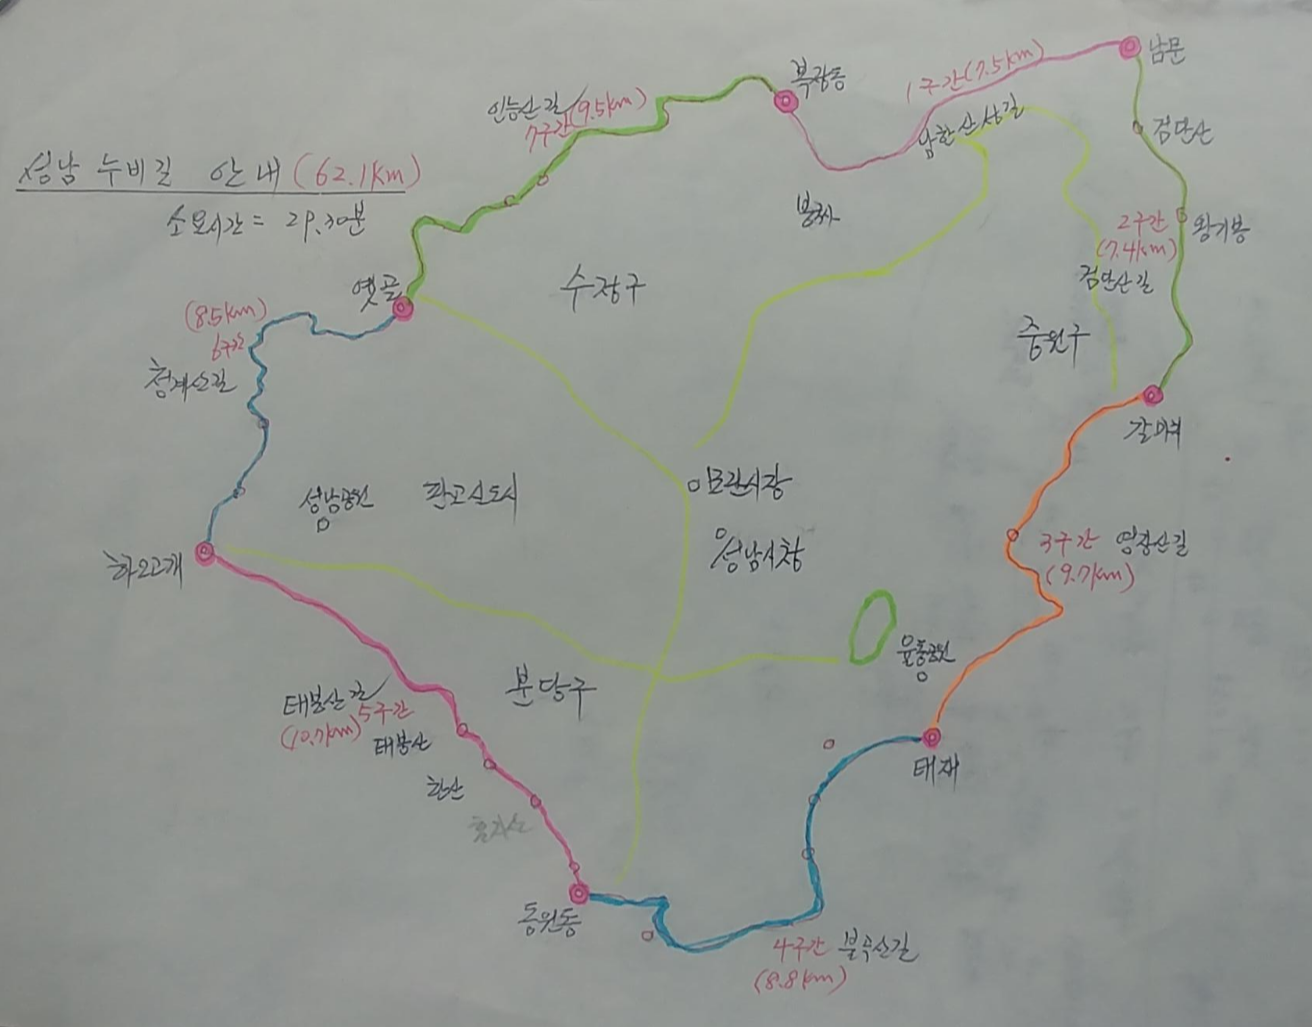 성남 누비길 안내 (62.1km)
소요시간 = 29.30분
복정동
1구간 (7.5km)
남한산성길
남문
검단산
왕기봉
2구간
(7.4km)
검단산길
인능산길
7구간 (9.5km)
옛골
수정구
중원구
갈마치
(8.5km)
6구간
청계산길
성남공원
판교신도시
모란시장
성남시청
3구간 영장산길
(9.7km)
하오고개
분당구
율동공원
태재
태봉산길
5구간
(10.7km)
태봉산
동원동
4구간 불곡산길
(8.8km)